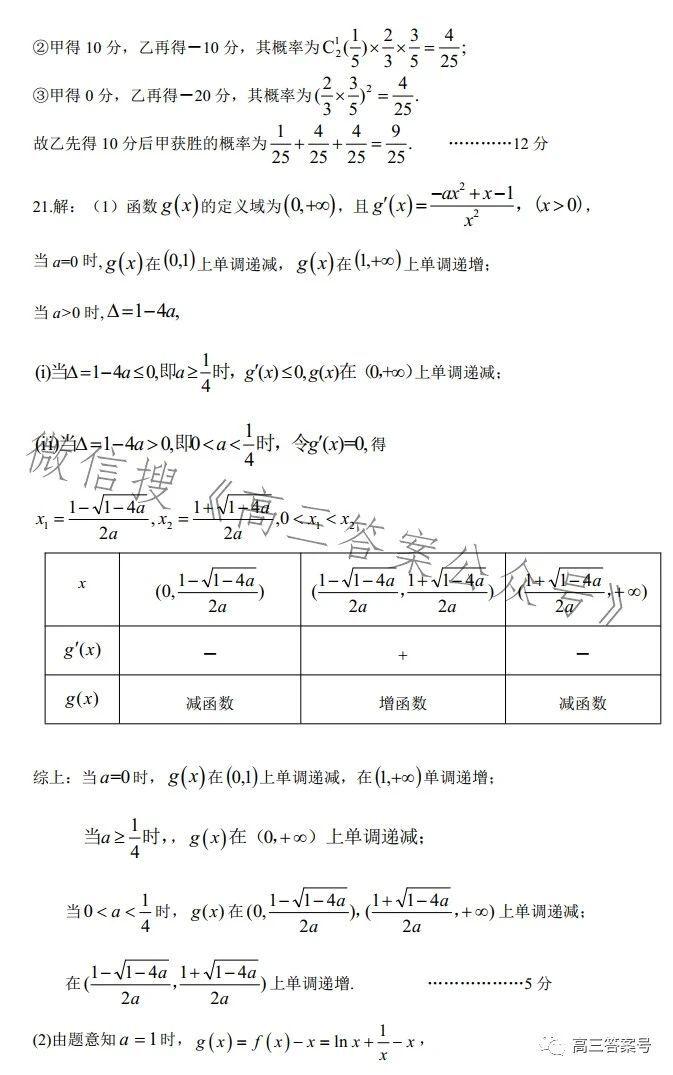 ②甲得 10 分，乙再得－10 分，其概率为 C₂¹(1/5)×2/3×3/5=4/25;
③甲得 0 分，乙再得－20 分，其概率为 (2/3×3/5)²=4/25.
故乙先得 10 分后甲获胜的概率为 1/25+4/25+4/25=9/25. …………12 分
21.解：（1）函数 g(x) 的定义域为 (0,+∞)，且 g′(x)=(-ax²+x-1)/x²，(x>0)，
当 a=0 时, g(x) 在 (0,1) 上单调递减， g(x) 在 (1,+∞) 上单调递增；
当 a>0 时, Δ=1-4a,
(i)当Δ=1-4a≤0,即a≥1/4时，g′(x)≤0,g(x)在（0,+∞）上单调递减；
(ii)当Δ=1-4a>0,即0<a<1/4时，令g′(x)=0, 得
x₁=(1-√(1-4a))/2a, x₂=(1+√(1-4a))/2a, 0<x₁<x₂
x (0,(1-√(1-4a))/2a) ((1-√(1-4a))/2a,(1+√(1-4a))/2a) ((1+√(1-4a))/2a,+∞)
g′(x) － + －
g(x) 减函数 增函数 减函数
综上：当 a=0 时， g(x) 在 (0,1) 上单调递减，在 (1,+∞) 单调递增；
当a≥1/4时，，g(x)在（0,+∞）上单调递减；
当 0<a<1/4 时， g(x) 在 (0,(1-√(1-4a))/2a)，((1+√(1-4a))/2a，+∞) 上单调递减；
在 ((1-√(1-4a))/2a，(1+√(1-4a))/2a) 上单调递增. ………………5 分
(2)由题意知 a=1 时， g(x)=f(x)-x=ln x+1/x-x，
微信搜《高三答案公众号》
高三答案号